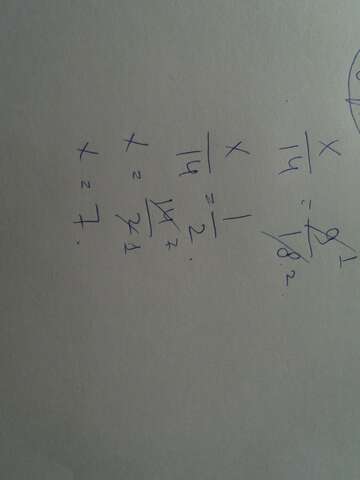 x/14 = 9/18 1 2.
x/14 = 1/2.
x = 14/2 7 1
x = 7.